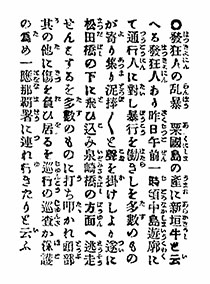 ◎發狂人の乱暴　粟國島の產に新垣牛と云
へる發狂人あり昨日午前一時頃中島遊廓に
て通行人に對し暴行を働きしを多數のもの
が寄り集り泥捧〱と聲を掛けしより遂に
松田橋の下に飛び込み泉崎橋の方面へ逃走
せんとするを多數のものに打ち叩かれ頭部
其の他に傷を負ひ居るを巡行の巡査が保護
の爲め一應那覇署に連れ行きたりと云ふ